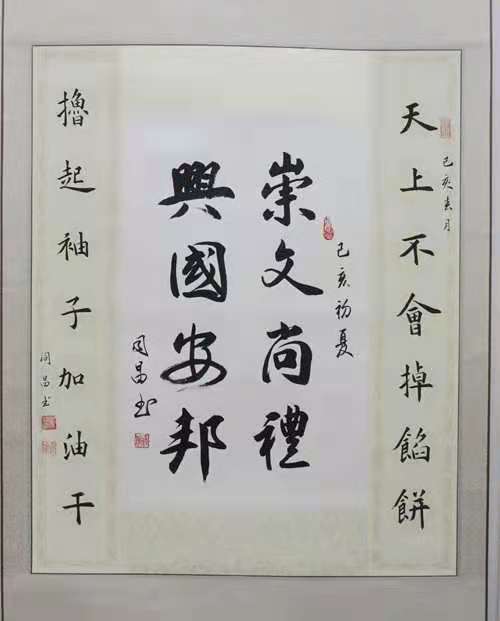 天上不會掉餡餅
己亥春月
己亥初夏
崇文尚禮
興國安邦
昌书
擼起袖子加油干
昌书